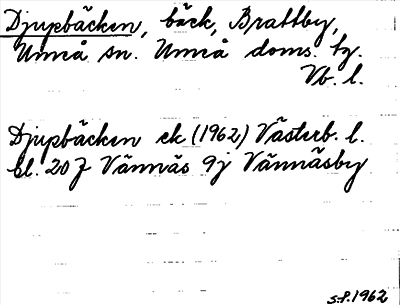 Djupbäcken, bäck, Brattby,
Umeå sn. Umeå doms. tg.
Vb. l.
Djupbäcken ek (1962) Västerb. l.
bl. 20 J Vännäs 9j Vännäsby
S.P. 1962